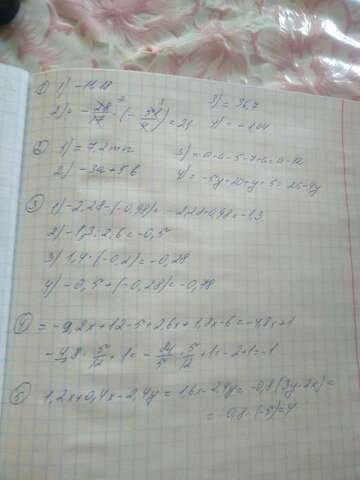 ① 1) -11.18 3) = 36z
2) = - 28/17 · (- 58/4) = 21 4) = -1.01
② 1) = 7.2mn 3) = a-a-5-7-a = a-12
2) -3a+5b 4) = -5y-20+y-5 = 25-4y
③ 1) -2,28-(-0,98) = -2,28+0,98 = -1.3
2) -1,3:2,6 = -0,5
3) 1,4·(-0,2) = -0,28
4) -0,5+(-0,28) = -0,78
④ = -9,2x+12-5+2,6x+1,8x-6 = -4,8x+1
-4,8· 5/12 +1 = - 24/5 · 5/12 +1 = -2+1 = -1
⑤ 1,2x+0,4x-2,4y = 1,6x-2,4y = -0,8(3y-2x) =
= -0,8·(-5) = 4